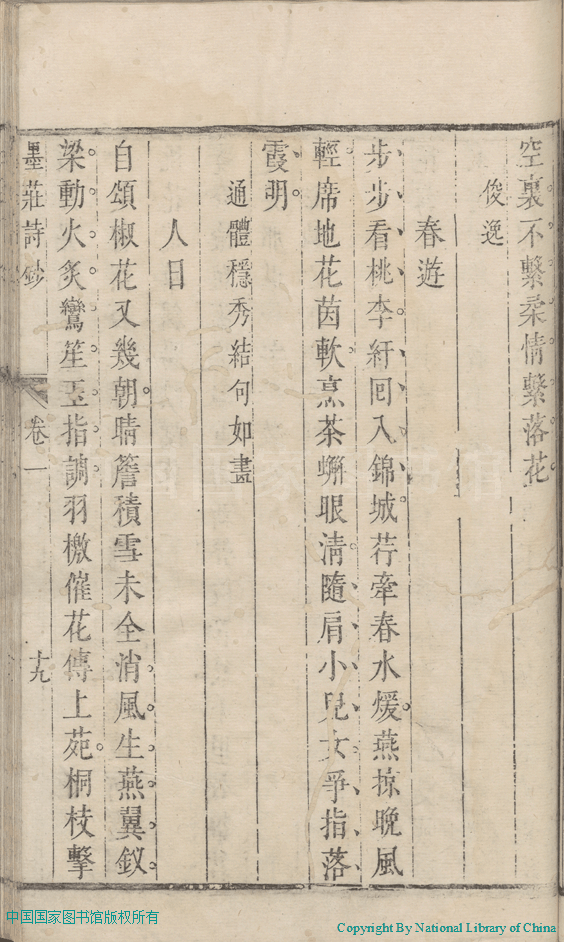 空裏不繫柔情繫落花
俊逸
春遊
步步看桃李紆囘入錦城荇牽春水煖燕掠晚風
輕席地花茵軟烹茶蠏眼淸隨肩小兒女爭指落
霞明
通體穩秀結句如畫
人日
自頌椒花又幾朝晴簷積雪未全消風生燕翼釵
梁動火炙鸞笙玉指調羽檄催花傳上苑桐枝擊
墨莊詩鈔 卷一 十九
中国国家图书馆版权所有
Copyright By National Library of China